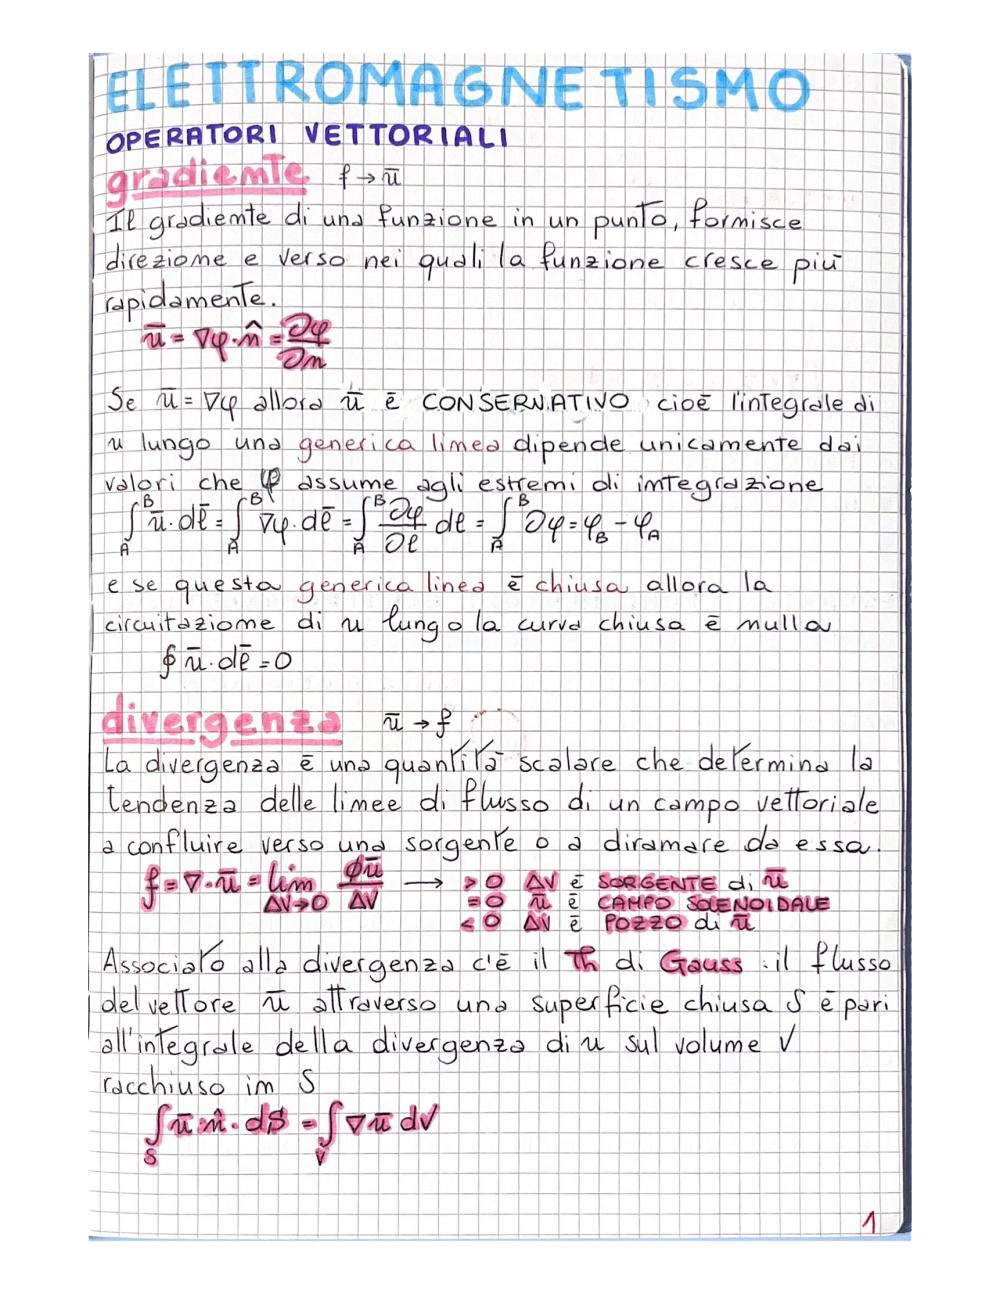 ELETTROMAGNETISMO
OPERATORI VETTORIALI
gradiente f → ū
Il gradiente di una funzione in un punto, fornisce
direzione e verso nei quali la funzione cresce più
rapidamente.
ū = ∇φ · n̂ = ∂φ/∂n
Se ū = ∇φ allora ū è CONSERVATIVO cioè l'integrale di
u lungo una generica linea dipende unicamente dai
valori che φ assume agli estremi di integrazione
∫_A^B ū · dℓ̄ = ∫_A^B ∇φ · dℓ̄ = ∫_A^B ∂φ/∂ℓ dℓ = ∫_A^B ∂φ = φ_B - φ_A
e se questa generica linea è chiusa allora la
circuitazione di u lungo la curva chiusa è nulla
∮ ū · dℓ̄ = 0
divergenza ū → f
La divergenza è una quantità scalare che determina la
tendenza delle linee di flusso di un campo vettoriale
a confluire verso una sorgente o a diramare da essa.
f = ∇ · ū = lim_{ΔV→0} Φū/ΔV → > 0 ΔV è SORGENTE di ū
= 0 ū è CAMPO SOLENOIDALE
< 0 ΔV è POZZO di ū
Associato alla divergenza c'è il Th di Gauss : il flusso
del vettore ū attraverso una superficie chiusa S è pari
all'integrale della divergenza di u sul volume V
racchiuso in S
∫_S ū n̂ · dS = ∫_V ∇ū dV
1